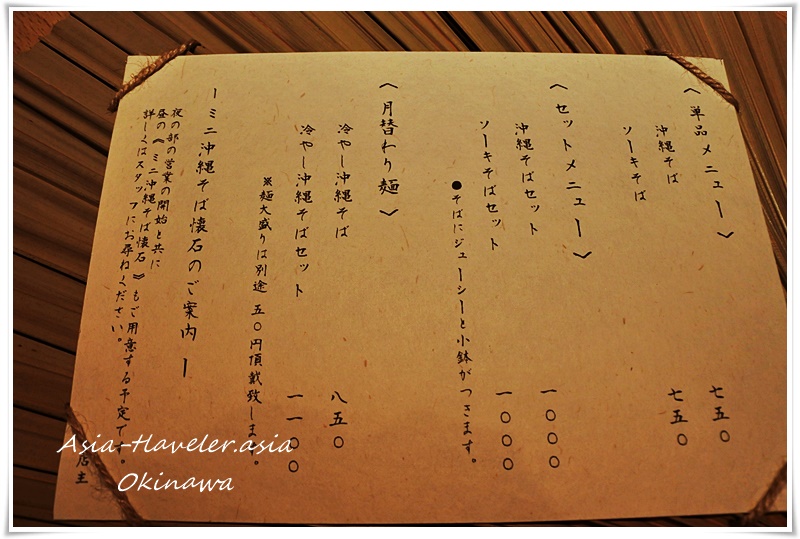 〈単品メニュー〉
沖縄そば 七五〇
ソーキそば 七五〇
〈セットメニュー〉
沖縄そばセット 一〇〇〇
ソーキそばセット 一〇〇〇
●そばにジューシーと小鉢がつきます。
〈月替わり麺〉
冷やし沖縄そば 八五〇
冷やし沖縄そばセット 一一〇〇
※麺大盛りは別途 五〇円頂戴致します。
ーミニ沖縄そば懐石のご案内ー
夜の部の営業の開始と共に
昼の《ミニ沖縄そば懐石》もご用意する予定です。
詳しくはスタッフにお尋ねください。
店主
Asia-Traveler.asia
Okinawa